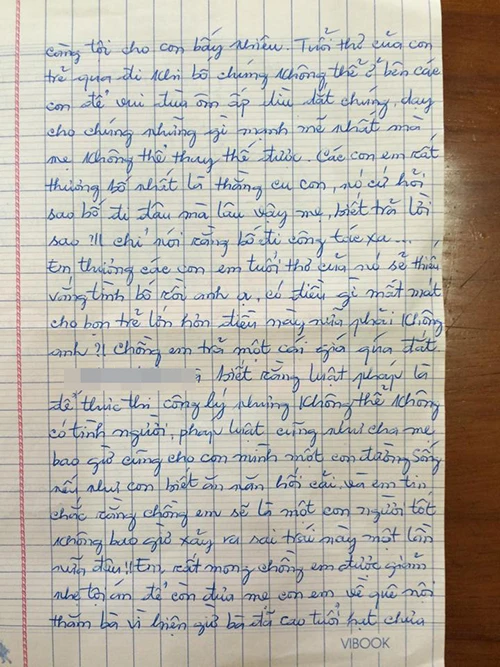 càng tội cho con bấy nhiêu. Tuổi thơ của con
trẻ qua đi khi bố chúng không thể ở bên các
con để vui đùa ôm ấp dìu dắt chúng, dạy
cho chúng những gì mạnh mẽ nhất mà
mẹ không thể thay thế được. Các con em rất
thương bố nhất là thằng cu con, nó cứ hỏi
sao bố đi đâu mà lâu vậy mẹ, biết trả lời
sao?!! chỉ nói rằng bố đi công tác xa...
Em thương các con em tuổi thơ của nó sẽ thiếu
vắng tình bố rồi anh ạ, có điều gì mất mát
cho bọn trẻ lớn hơn điều này nữa phải không
anh?! chồng em trả một cái giá quá đắt.
biết rằng luật pháp là
để thực thi công lý nhưng không thể không
có tình người, pháp luật cũng như cha mẹ
bao giờ cũng cho con mình một con đường sống
nếu như con biết ăn năn hối cải. và em tin
chắc rằng chồng em sẽ là một con người tốt
không bao giờ xảy ra sai trái này một lần
nữa đâu!! Em, rất mong chồng em được giảm
nhẹ tội án để còn đưa mẹ con em về quê nội
thăm bà vì hiện giờ bà đã cao tuổi hụt chưa
VIBOOK